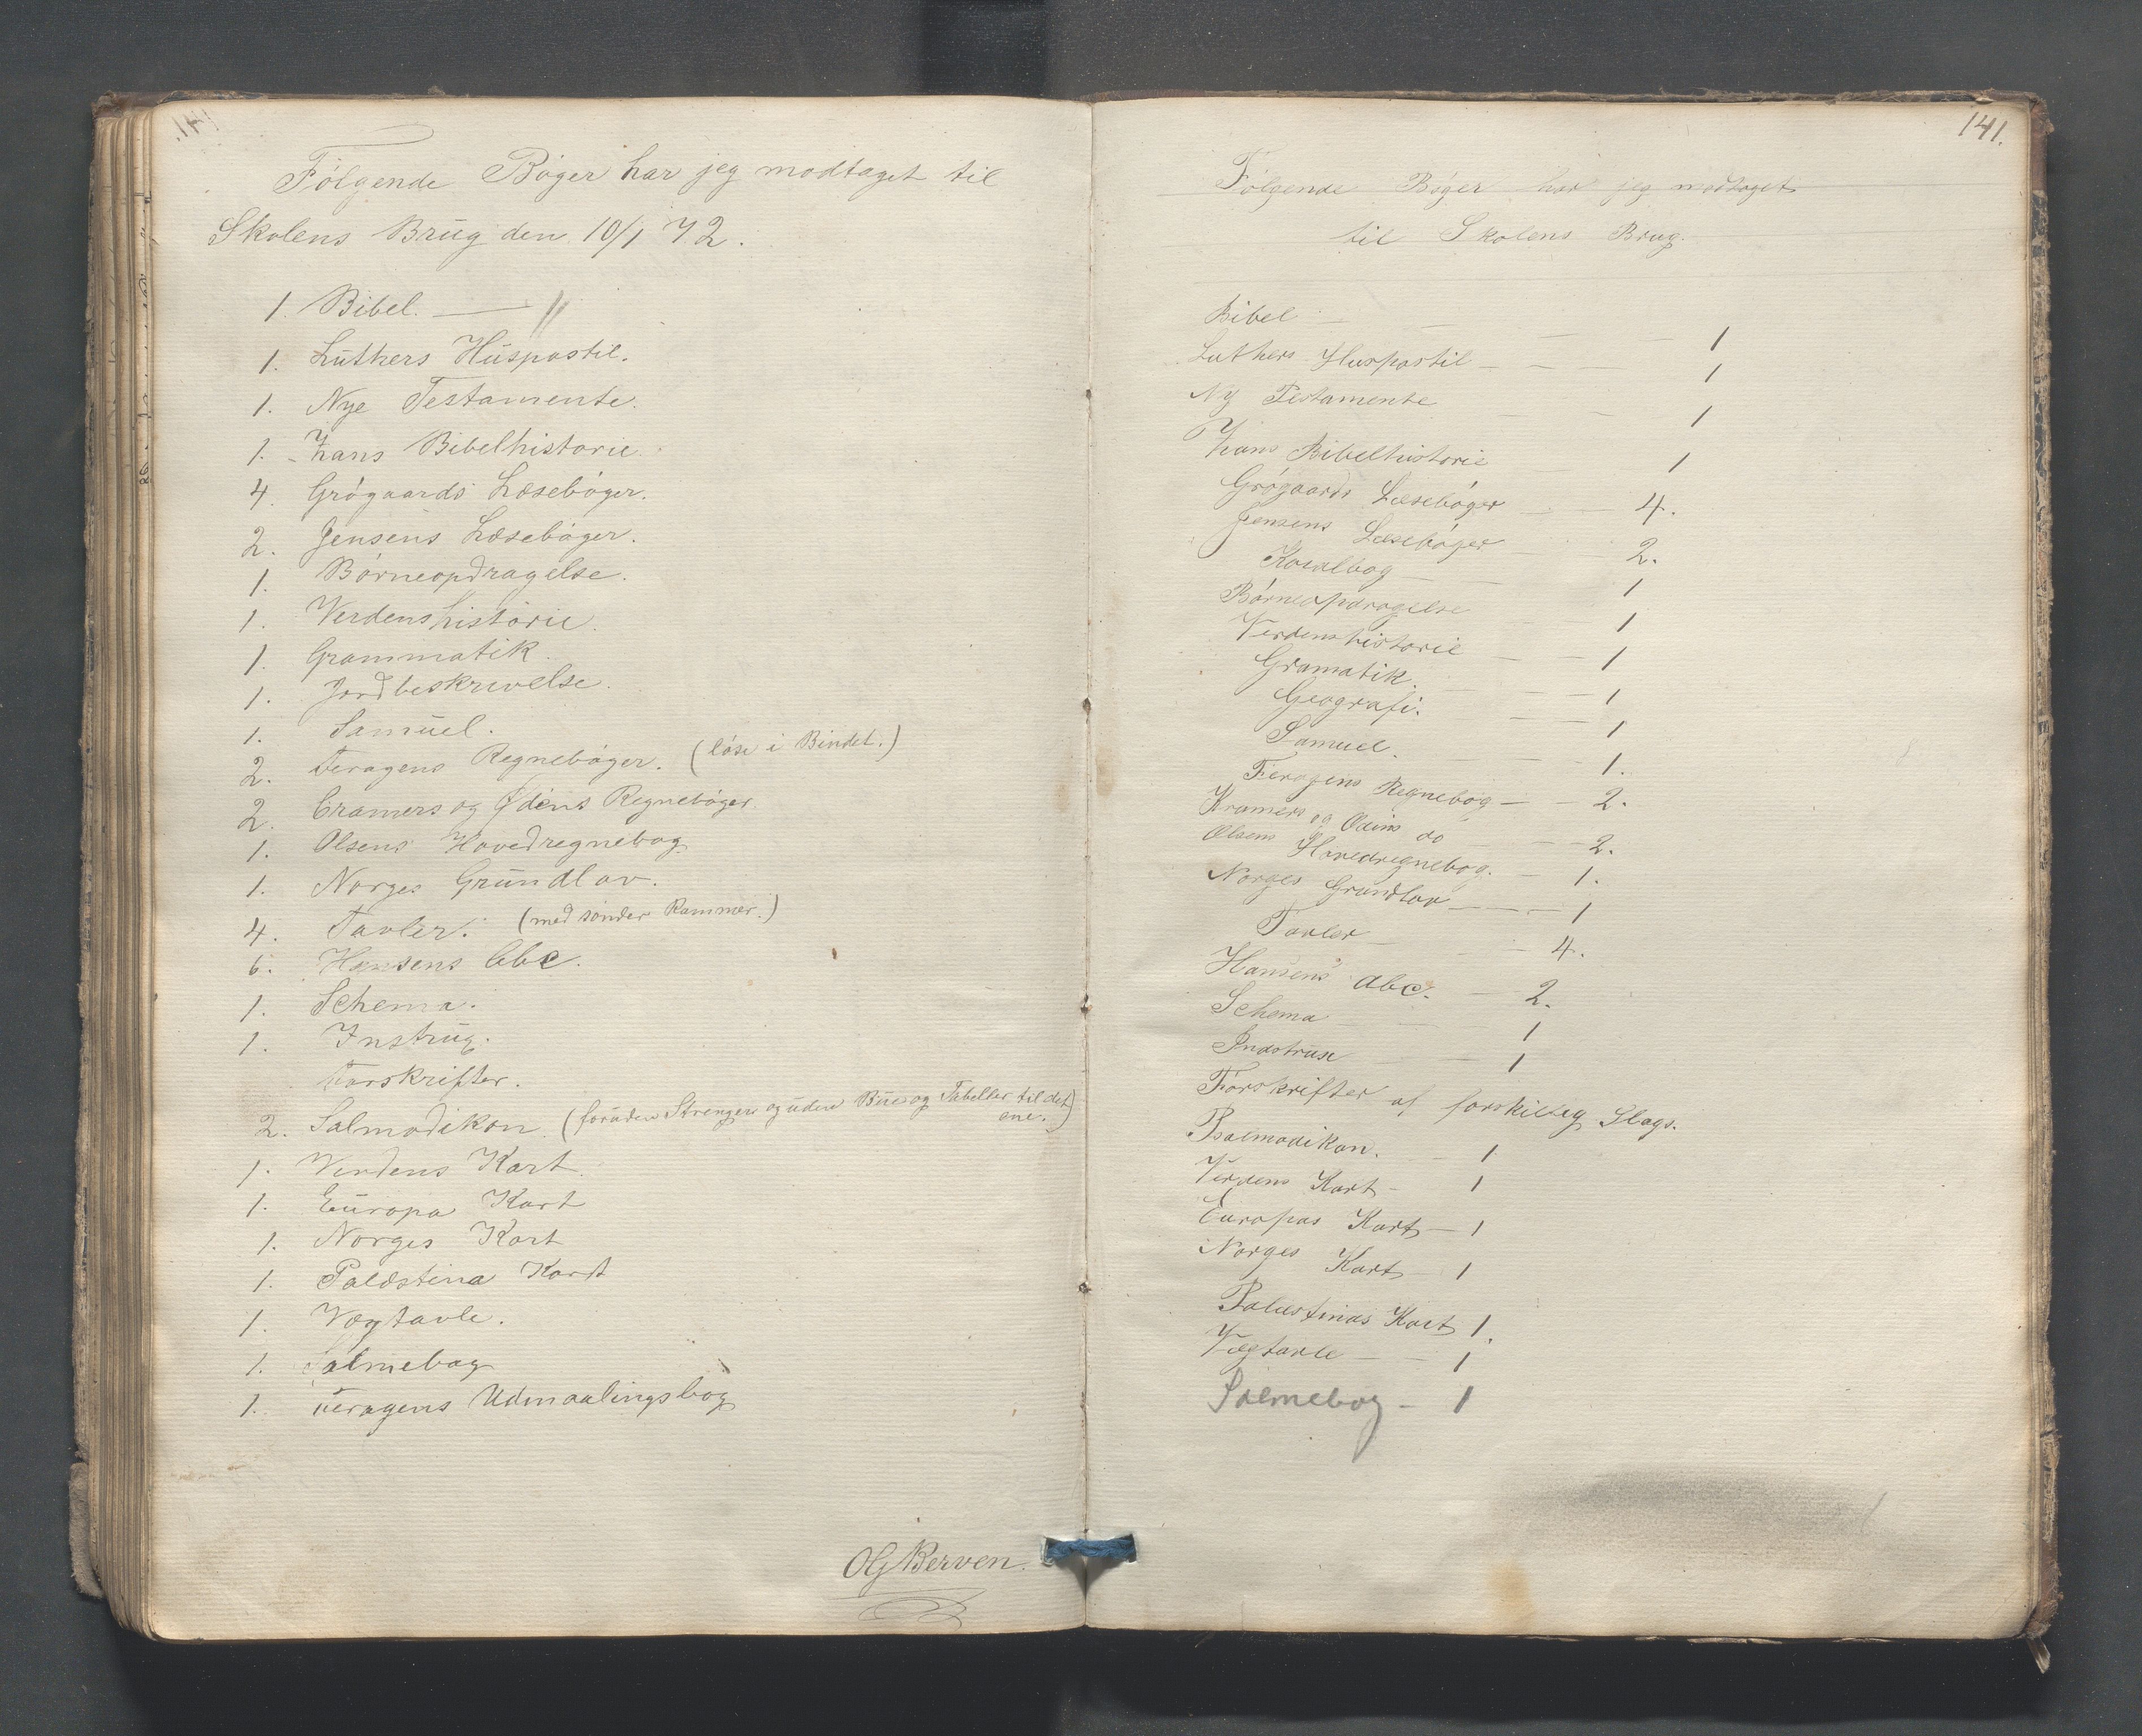 Følgende Bøger har jeg modtaget til
Skolens Brug den 10/1 72.
1. Bibel. — //
1. Luthers Huspostil.
1. Nye Testamente.
1. Zans Bibelhistorie.
4. Grøgaards Læsebøger.
2. Jensens Læsebøger.
1. Børneopdragelse.
1. Verdenshistorie.
1. Grammatik.
1. Jordbeskrivelse.
1. Samuel.
2. Feragens Regnebøger. (løse i Bindet.)
2. Cramers og Ødens Regnebøger
1. Olsens Hovedregnebog
1. Norges Grundlov.
4. Tavler. (med sønder Rammer.)
6. Hansens Abc.
1. Schema.
1. Instrug.
Forskrifter.
2. Salmodikon. (foruden Strenger og uden Bue og Tabeller til det ene.)
1. Verdens Kart.
1. Europa Kart
1. Norges Kart
1. Palæstina Kart
1. Vægtavle.
1. Salmebog
1. Feragens Udmaalingsbog
OG Berven.
141.
Følgende Bøger har jeg modtaget
til Skolens Brug.
Bibel — — — — 1
Luthers Huspostil — — — 1
Ny Testamente — — 1
Zans Bibelhistorie — — 1
Grøgaards Læsebøger — — 4.
Jensens Læsebøger — — 2.
Koralbog — — 1
Børneopdragelse — — 1
Verdenshistorie — — 1
Gramatik. — — — 1
Geografi. — — 1
Samuel. — — — 1.
Feragens Regnebog — — 2.
Kramers og Ødins do — — 2.
Olsens Hovedregnebog. — 1.
Norges Grundlov — — — 1
Tavler — — — 4.
Hansens Abc. — 2.
Schema — — — 1
Indstruse — — 1
Forskrifter af forskillig Slags.
Psalmodikon. — 1
Verdens Kart — 1
Europas Kart — 1
Norges Kart — 1
Palæstinas Kart 1.
Vægtavle — — 1
Salmebog — 1